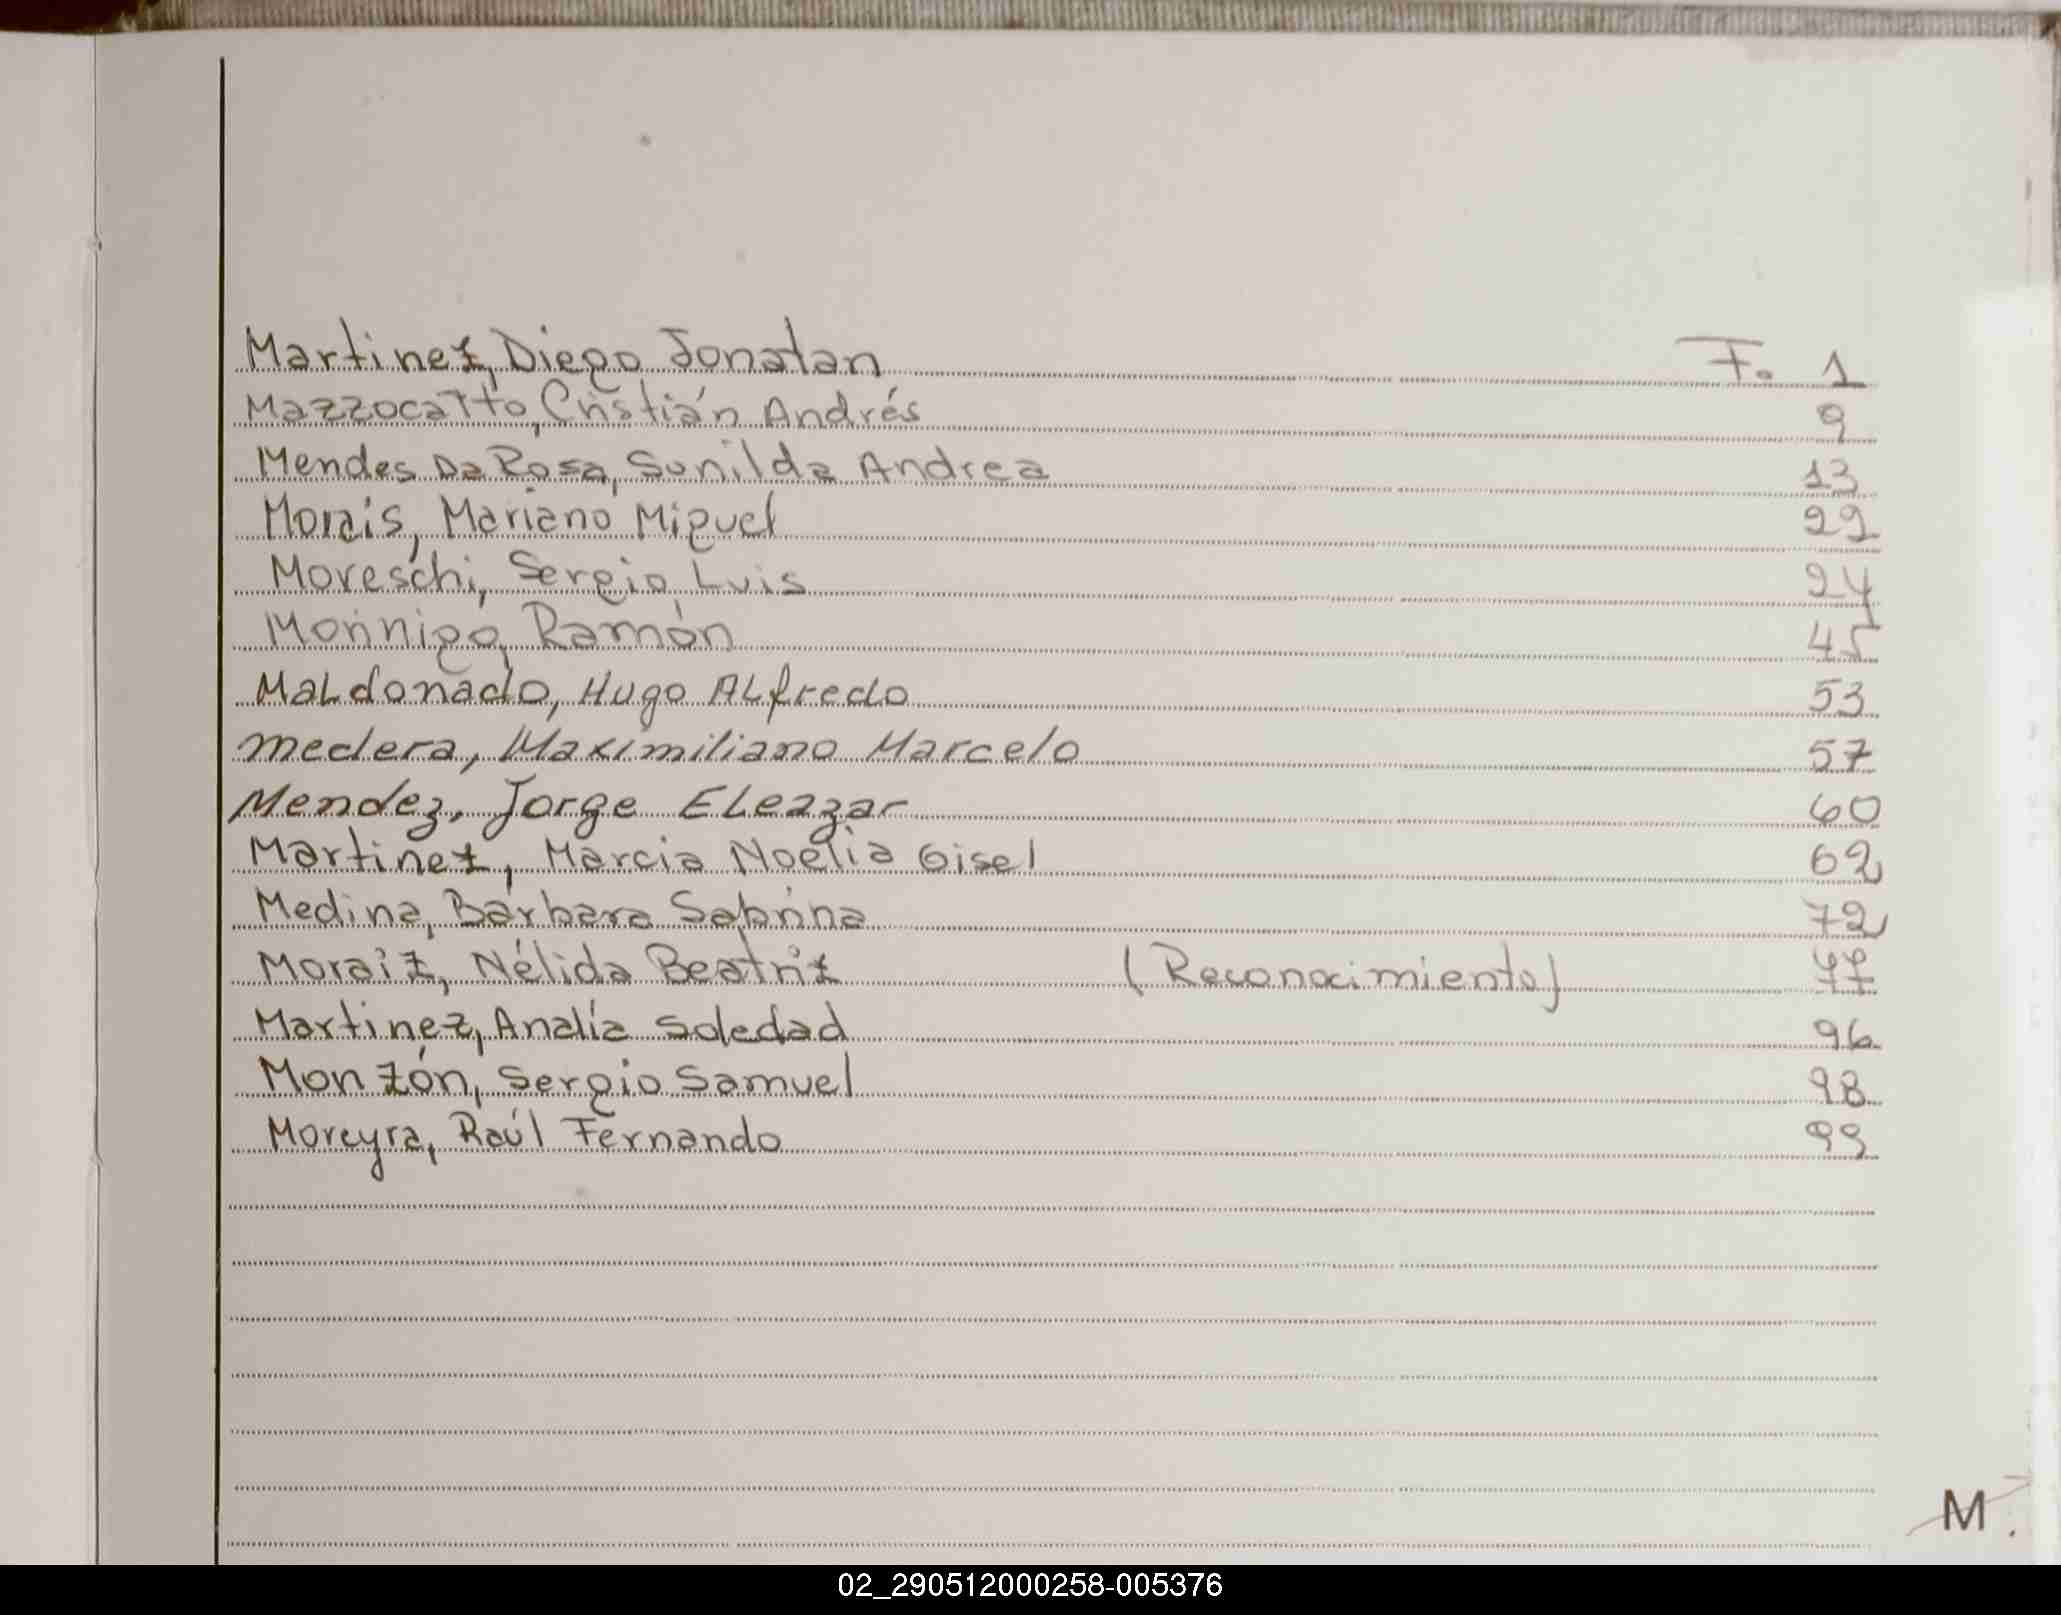 Martinez, Diego Jonatan F. 1
Mazzocatto, Cristián Andrés 9
Mendes Da Rosa, Sunilda Andrea 13
Morais, Mariano Miguel 22
Moreschi, Sergio Luis 24
Morinigo, Ramón 45
Maldonado, Hugo Alfredo 53
Medera, Maximiliano Marcelo 57
Mendez, Jorge Eleazar 60
Martinez, Marcia Noelia Gisel 62
Medina, Bárbara Sabrina 72
Moraiz, Nélida Beatriz (Reconocimiento) 77
Martinez, Analía Soledad 96
Monzón, Sergio Samuel 98
Moreyra, Raúl Fernando 99
M.
02_290512000258-005376